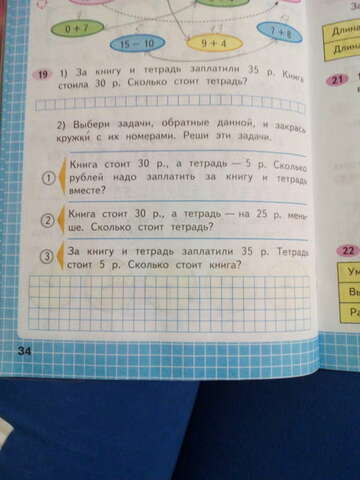 0 + 7
15 − 10
9 + 4
7 + 8
19 1) За книгу и тетрадь заплатили 35 р. Книга
стоила 30 р. Сколько стоит тетрадь?
2) Выбери задачи, обратные данной, и закрась
кружки с их номерами. Реши эти задачи.
1 Книга стоит 30 р., а тетрадь — 5 р. Сколько
рублей надо заплатить за книгу и тетрадь
вместе?
2 Книга стоит 30 р., а тетрадь — на 25 р. мень-
ше. Сколько стоит тетрадь?
3 За книгу и тетрадь заплатили 35 р. Тетрадь
стоит 5 р. Сколько стоит книга?
34
Длина
Длина
21
22
Ум
Вы
Ра